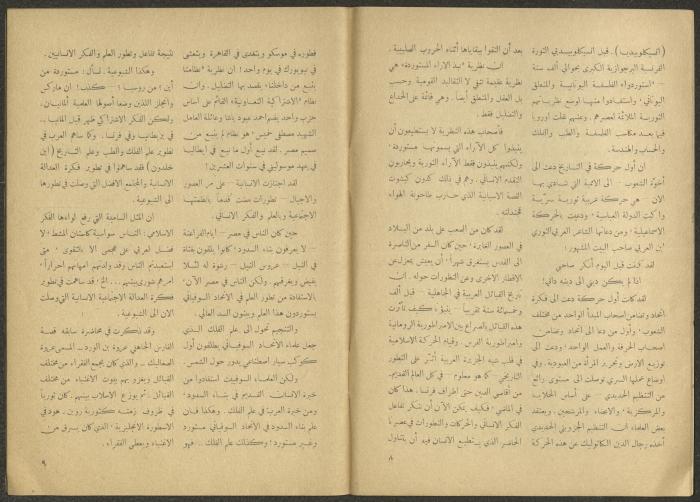 (انسيكلوبيديا). قبل انسيكلوبيديي الثورة
الفرنسية البرجوازية الكبرى بحوالي ألف سنة
- «استوردوا» الفلسفة اليونانية والمنطق
اليوناني، واستفادوا منهما لوضع نظرياتهم
الثورية الملائمة لعصرهم. وعنهم نقلت اوروبا
فيما بعد مكاسب الفلسفة والطب والفلك
والحساب والهندسة.
ان أول حركة في التاريخ دعت الى
اخوّة الشعوب - الى الاممية التي تنادي بها
الآن - هي حركة عربية ثورية سرّية
واكبت الدولة العباسية، ودعيت بالحركة
الاسماعيلية، ومن دعاتها الشاعر العربي الثوري
ابن العربي صاحب البيت المشهور:
لقد كنت قبل اليوم أنكر صاحبي
اذا لم يكن ديني الى دينه داني!
لقد كانت أول حركة دعت الى فكرة
اتحاد وتضامن اصحاب المبدأ الواحد من مختلف
الشعوب، وأول من دعا الى اتحاد وتضامن
اصحاب الحرفة والعمل الواحد، ودعت الى
توزيع الارض وتحرير المرأة من العبودية. وفي
اوضاع عملها السري توصلت الى مستوى رائع
من التنظيم الحديدي - على أساس الخلايا
والمركزية، والاعضاء والمرشحين. ويعتقد
بعض العلماء ان التنظيم الحزبي الحديدي
أخذه رجال الدين الكاثوليك عن هذه الحركة
بعد أن التقوا ببقاياها أثناء الحروب الصليبية.
ان نظرية «نبذ الآراء المستوردة» هي
نظرية عقيمة تنفي لا التقاليد القومية وحسب
بل العقل والمنطق أيضا. وهي قائمة على الخداع
والتضليل فقط.
فأصحاب هذه النظرية لا يستطيعون أن
ينبذوا كل الآراء التي يسمونها مستوردة،
ولكنهم ينبذون فقط الآراء الثورية ويحاربون
التقدم الانساني. وهم في ذلك كدون كيشوت
القصة الاسبانية الذي حارب طاحونة الهواء
فحمدته.
لقد كان من الصعب على بلد من البلاد
في العصور الغابرة، حين كان السفر من الناصرة
الى القدس يستغرق شهراً، أن يعيش بمعزل عن
الاقطار الاخرى وعن التطورات حوله. ان
تاريخ القبائل العربية في الجاهلية - قبل ألف
وخمسمائة سنة تقريباً - يفيدنا كيف تأثرت
هذه القبائل بالصراع بين الامبراطورية الرومانية
وامبراطورية الفرس. وقيام الحركة الاسلامية
في قلب شبه الجزيرة العربية أثر على التطور
التاريخي - كما هو معلوم - في كل العالم القديم.
من أقاصي الصين حتى اطراف فرنسا. هذا كان
في الماضي، فكيف يمكن الآن أن ننكر تفاعل
الفكر الانساني والحركات والتطورات في عصرنا
الحاضر الذي يستطيع الانسان فيه أن يتناول
٨
فطوره في موسكو ويتغدى في القاهرة ويتعشى
في نيويورك في يوم واحد! ان نظرية «نظامنا
ينبع من داخلنا» يقصد بها التضليل. وان
نظام «الاشتراكية التعاونية» القائم على أساس
حزب واحد يضم احمد عبود باشا وعائلة العامل
الشهيد مصطفى خميس، هو نظام لم ينبع من
صميم مصر. لقد نبع أول ما نبع في ايطاليا
في عهد موسوليني في سنوات العشرين!
لقد اجتازت الانسانية - على مر العصور
والاجيال - تطورات مضت قدماً بأنظمتها
الاجتماعية وبالعلم والفكر الانساني.
حين كان الناس في مصر - ايام الفراعنة
- لا يعرفون بناء السدود، كانوا يلقون بفتاة
في النيل - عروس النيل - رشوة له لئلا
يفيض ويغرقهم. ولكن الناس في مصر الآن،
بالاستفادة من تطور العلم في الاتحاد السوفياتي
يستوردون هذا العلم ويبنون السد العالي.
والتنجيم تحول الى علم الفلك الذي
جعل علماء الاتحاد السوفياتي يطلقون أول
كوكب سيار اصطناعي يدور حول الشمس.
ولكن العلماء السوفييت استفادوا من
خبرة الانسان القديم في بناء السدود،
ومن خبرة العرب في علم الفلك. وهكذا فان
علم بناء السدود في الاتحاد السوفياتي مستورد
وغير مستورد! وكذلك علم الفلك.. فهو
نتيجة تفاعل وتطور العلم والفكر الانسانيين.
وهكذا الشيوعية. نسأل: مستوردة من
أين؟ من روسيا؟ - كذب! ان ماركس
وانجلز اللذين وضعا أسسها العلمية ألمانيان.
ولكن الفكر الاشتراكي ظهر قبل المانيا..
في بريطانيا وفي فرنسا. وكما ساهم العرب في
تطوير علم الفلك والطب وعلم التاريخ (ابن
خلدون) فقد ساهموا في تطوير فكرة العدالة
الانسانية والمجتمع الافضل التي وصلت في تطورها
الى الشيوعية.
ان المثل السامية التي رفع لواءها الفكر
الاسلامي: الناس سواسية كاسنان المشط، لا
فضل لعربي على عجمي الا بالتقوى، متى
استعبدتم الناس وقد ولدتهم امهاتهم احراراً،
امرهم شورى بينهم... الخ. قد ساهمت في تطوير
فكرة العدالة الاجتماعية الانسانية التي وصلت
الآن الى الشيوعية.
وقد ذكرت في محاضرة سابقة قصة
الفارس الجاهلي عروة بن الورد.. المسمى عروة
الصعاليك.. والذي كان يجمع الفقراء من مختلف
القبائل ويغزو بهم بيوت الاغنياء من مختلف
القبائل. ثم يوزع الاسلاب بينهم. كان ثورياً
في ظروف زمنه كثورية روبن هود في
الاسطورة الانجليزية، الذي كان يسرق من
الاغنياء ويعطي الفقراء.
٩